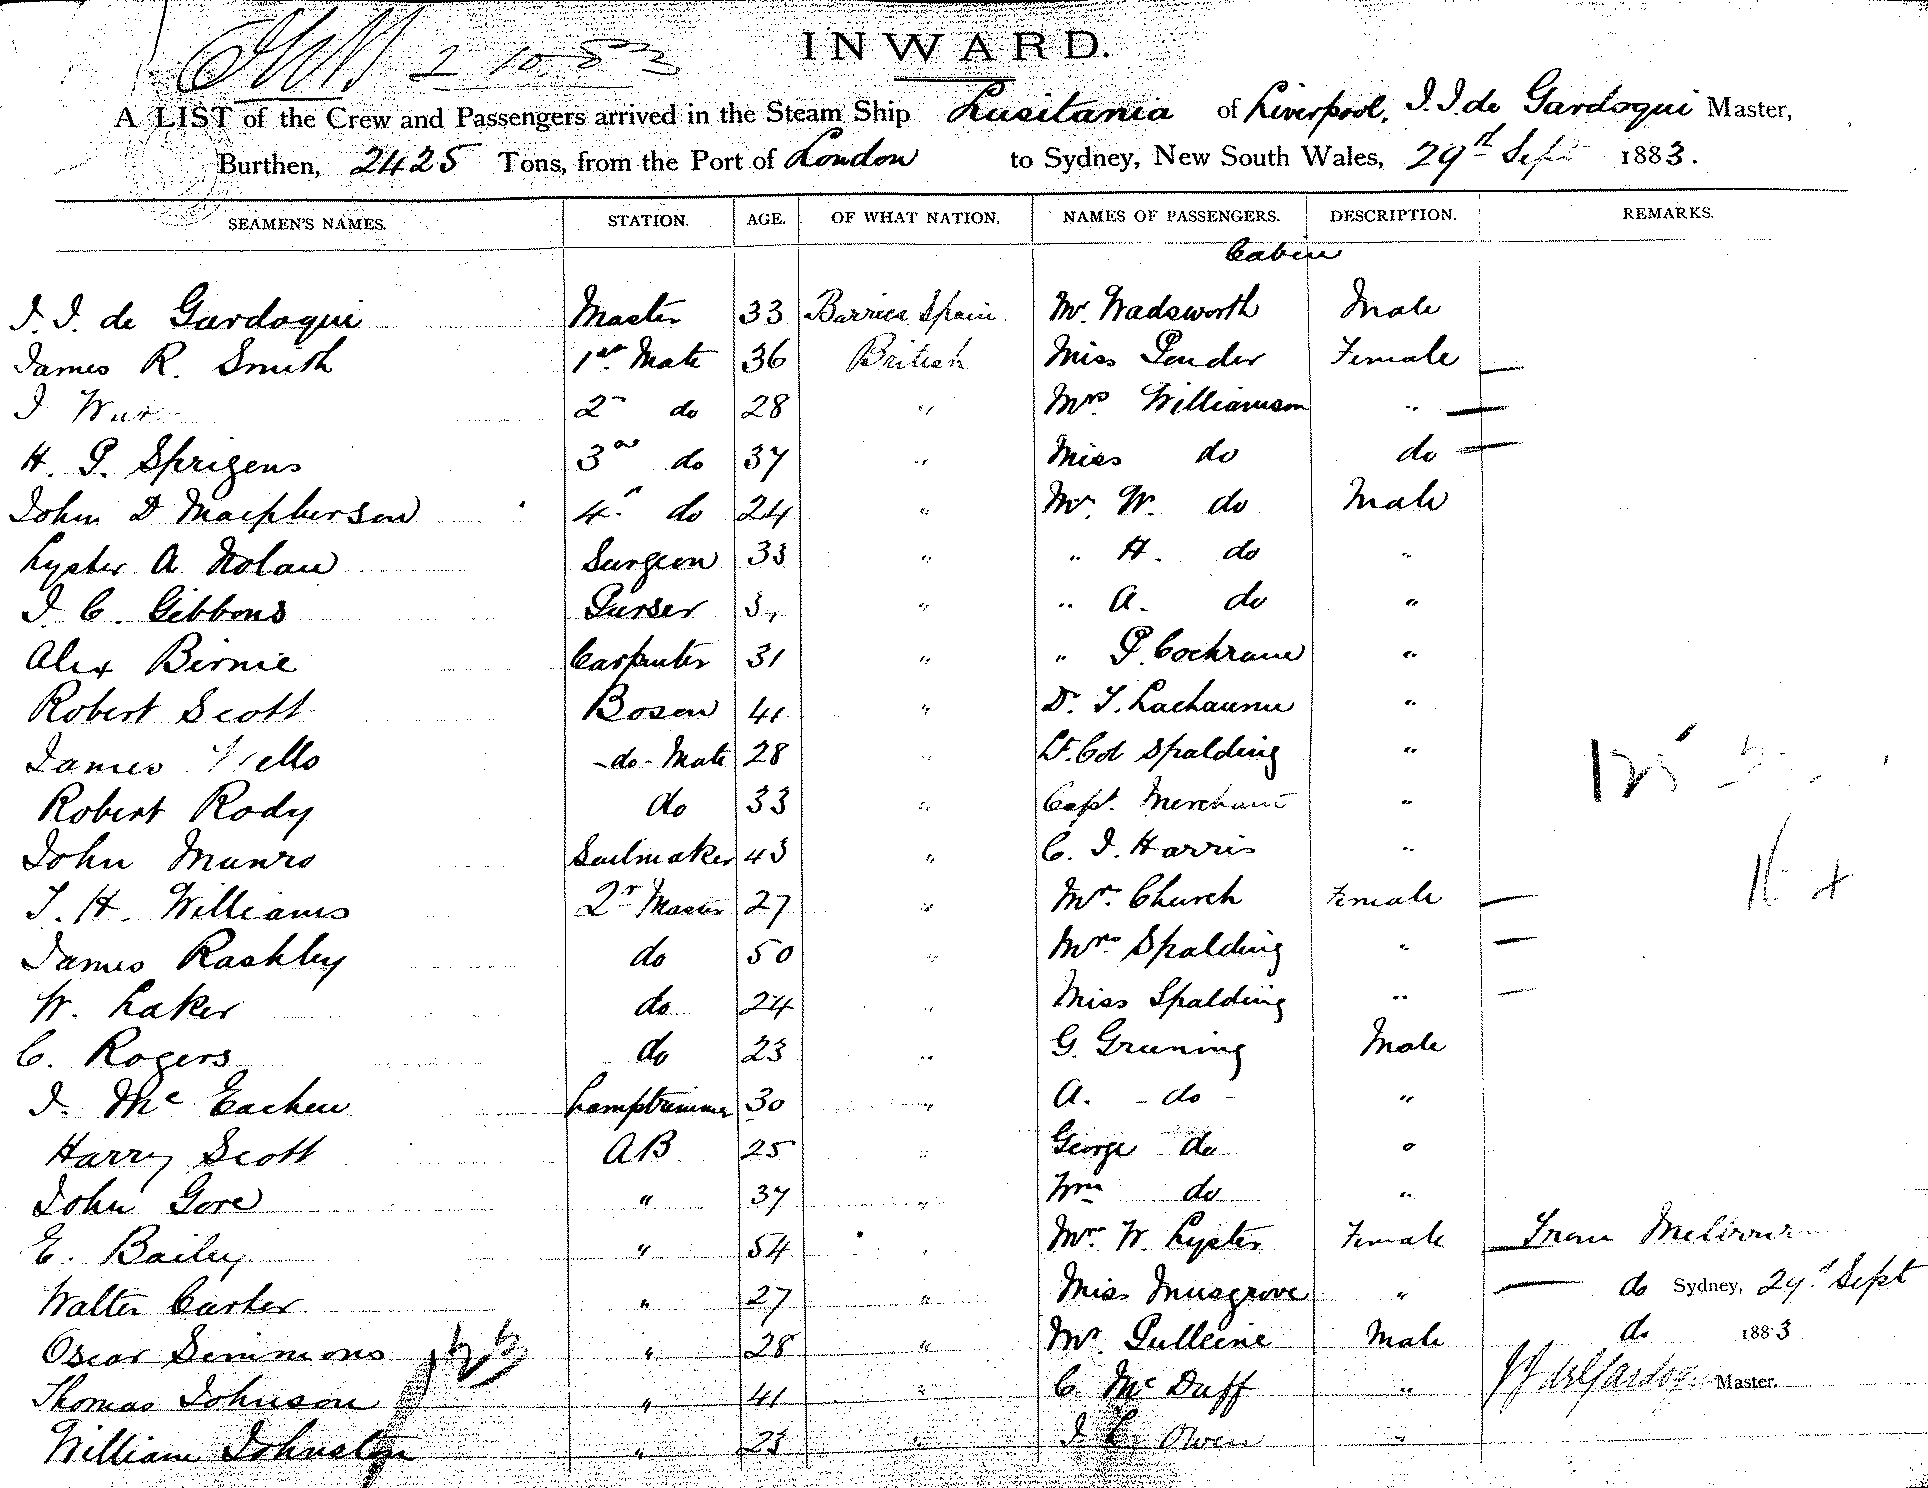 2 10 83
INWARD.
A LIST of the Crew and Passengers arrived in the Steam Ship Lusitania of Liverpool, J. J. de Gardoqui Master,
Burthen, 2425 Tons, from the Port of London to Sydney, New South Wales, 29th Sept 1883.
SEAMEN'S NAMES. STATION. AGE. OF WHAT NATION. NAMES OF PASSENGERS. DESCRIPTION. REMARKS.
Cabin
J. J. de Gardoqui Master 33 Barrica Spain Mr. Wadsworth Male
James R. Smith 1st Mate 36 British Miss Pender Female
J 2 do 28 " Mrs Williamson "
H. P. Sprigens 3rd do 37 " Miss do do
John D Macpherson 4 do 24 " Mr. W. do Male
Lyster A Nolan Surgeon 33 " " H. do "
J. C. Gibbons Purser " " A. do "
Alex Birnie Carpenter 31 " " P. Cochrane "
Robert Scott Bosen 41 " Dr. T. "
James do Mate 28 " Lt. Col Spalding "
Robert Rody do 33 " Capt. Merchant "
John Munro Sailmaker 43 " C. J. Harris "
T. H. Williams 2r Master 27 " Mrs. Church Female
James Rashley do 50 " Mrs Spalding "
W. Laker do 24 " Miss Spalding "
C. Rogers do 23 " G. Gruning Male
J. Mc Eachen Lamptrimmer 30 " A. - do - "
Harry Scott AB 25 " George do "
John Gore " 37 " Wm do "
E. Bailey " 54 " Mrs. W. Lyster Female From Melbourne
Walter Carter " 27 " Miss Musgrove " do Sydney, 29th Sept
Oscar Simmons " 28 " Mr. Pulleine Male do 1883
Thomas Johnson " 41 " C. Mc Duff " J J de Gardoqui Master.
William Johnston " 23 " J. C. Owen "